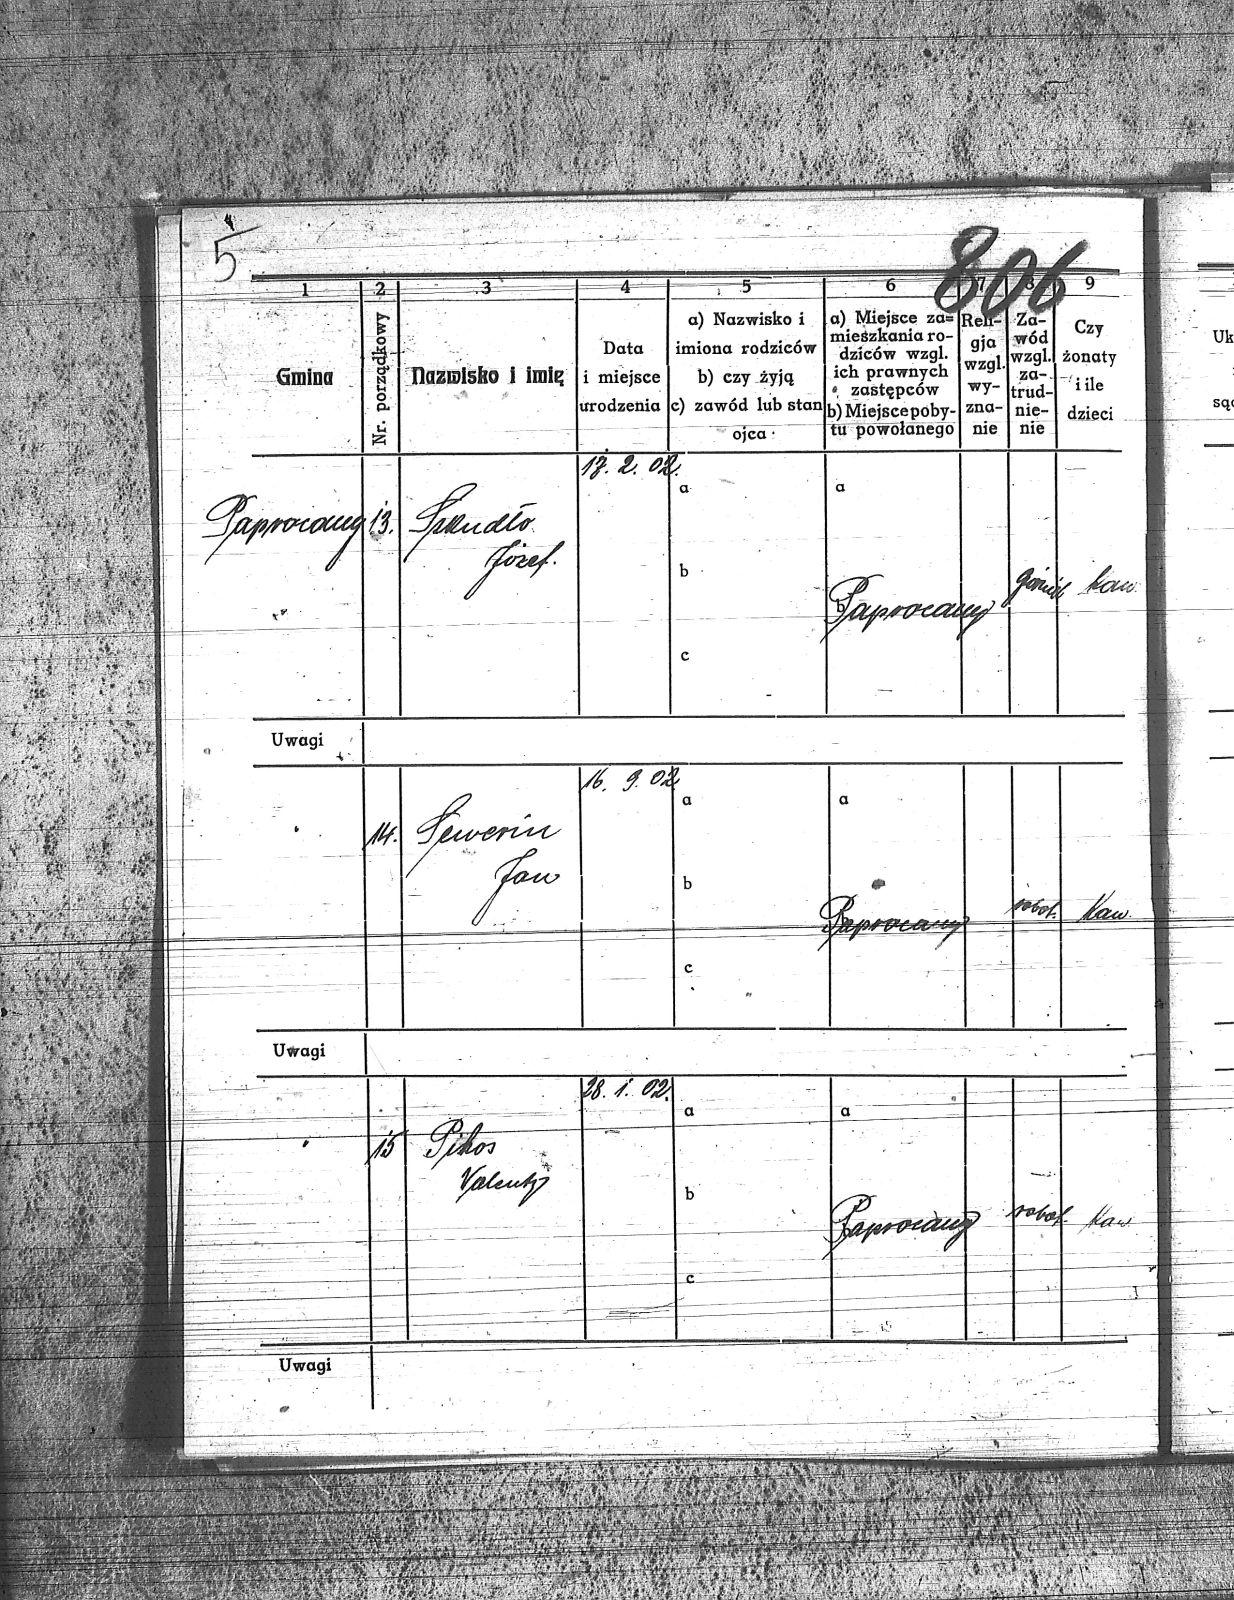 5
806
1 2 3 4 5 6 7 8 9
Gmina
Nr. porządkowy
Nazwisko i imię
Data
i miejsce
urodzenia
a) Nazwisko i
imiona rodziców
b) czy żyją
c) zawód lub stan
ojca
a) Miejsce za=
mieszkania ro-
dziców wzgl.
ich prawnych
zastępców
b) Miejsce poby-
tu powołanego
Reli-
gja
wzgl.
wy-
zna-
nie
Za-
wód
wzgl.
za-
trud-
nie-
nie
Czy
żonaty
i ile
dzieci
17. 2. 02.
a a
Paprocany 13. Szkudło
Józef.
b
górnik kaw.
b Paprocany
c
Uwagi
16. 9. 02
a a
" 14. Sewerin
Jan
b
robot. Kaw.
Paprocany
c
Uwagi
28. 1. 02.
a a
" 15 Pikos
Valenty
b
robot. Kaw
Paprocany
c
Uwagi
Uk